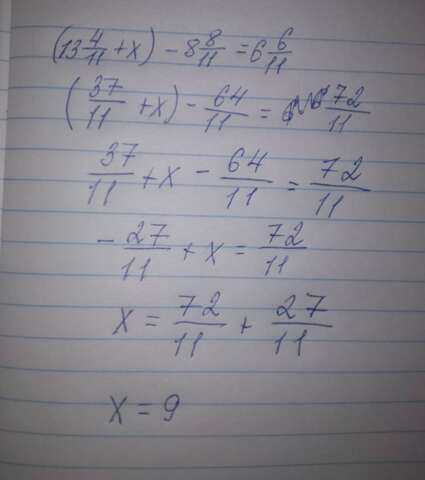 (13 4/11 + x) - 8 8/11 = 6 6/11
(37/11 + x) - 64/11 = 72/11
37/11 + x - 64/11 = 72/11
- 27/11 + x = 72/11
x = 72/11 + 27/11
x = 9